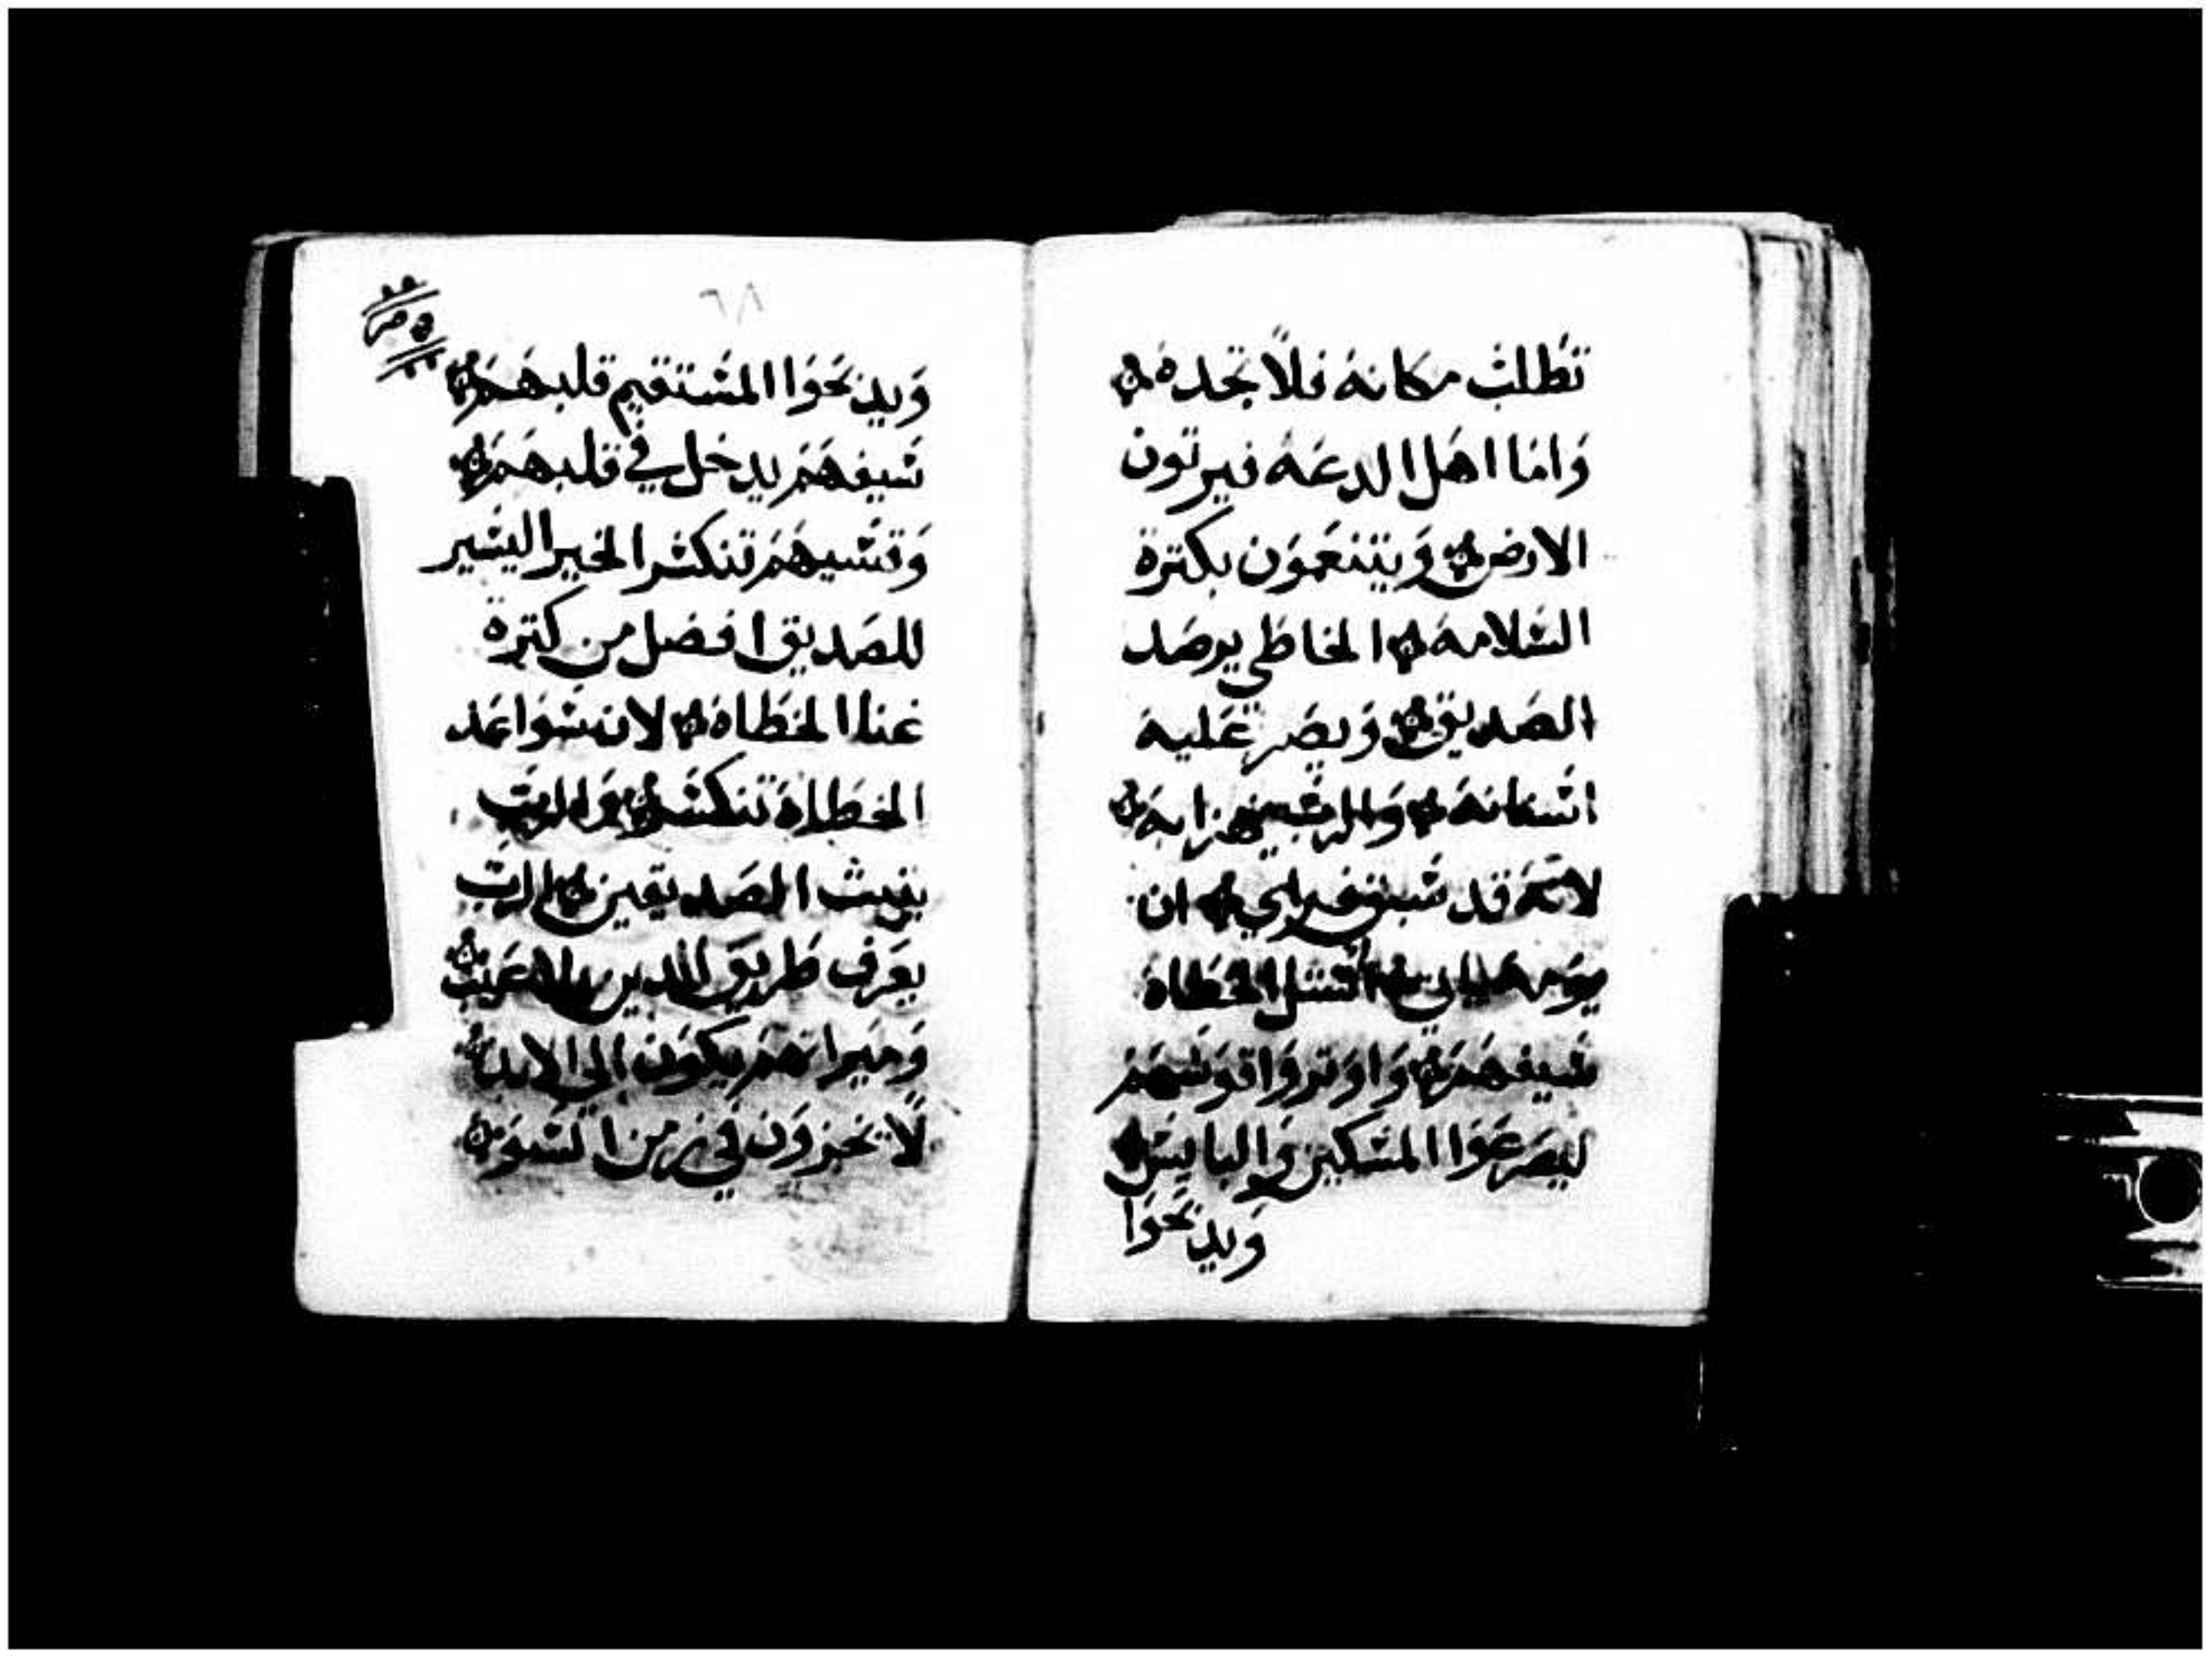 تطلب مكانه فلا تجده
واما اهل الدعه فيرتون
الارض ويتنعمون بكترة
السلامه الخاطي يرصد
الصديق ويصر عليه
اسنانه والرب يهزا به
لانه قد سبق فراي ان
يومه ياتي استل الخطاه
سيفهم واوتروا قوسهم
ليصرعوا المسكين والبايس
ويدبحوا
٦٨
ويدبحوا المستقيم قلبهم
سيفهم يدخل في قلبهم
وقسيهم تنكسر الخير اليسير
للصديق افضل من كترة
غنا الخطاه لان سواعد
الخطاه تنكسر والرب
يتبت الصديقين الرب
يعرف طريق الدين بلا عيب
وميراتهم يكون الى الابد
لا يخزون في زمن السو